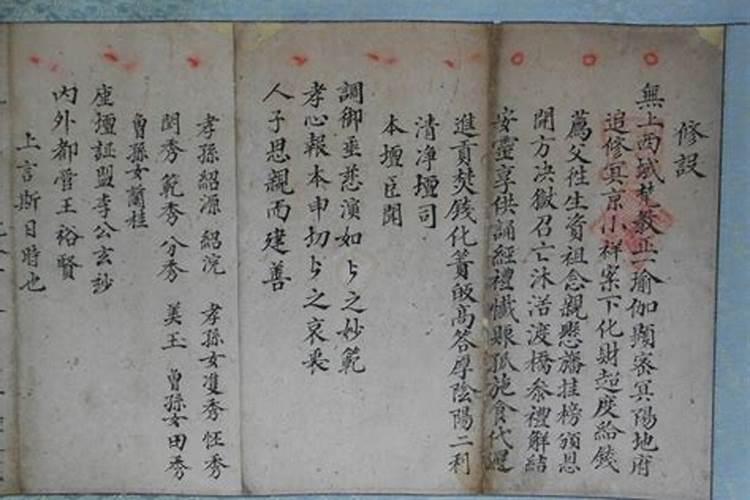 修設
無上西域梵教正一瑜伽顯密冥陽地府
追修冥京小祥案下化財超度給錢
薦父往生資祖念親懸旛挂榜頒恩
開方决獄召亡沐浴渡橋參禮解結
安靈享供誦經禮懺賑孤施食代還
進貢焚錢化籌皈高答厚陰陽二利
清净壇司
本壇臣聞
調御垂慈演如ㄣ之妙範
孝心報本申切ㄣ之哀衷
人子思親而建善
孝孫紹源 紹浣 孝孫女雙秀 恇秀
閏秀 範秀 分秀 美玉 曾孫女田秀
曾孫女蘭桂
座壇証盟李公玄妙
内外都管王裕賢
上言斯日時也